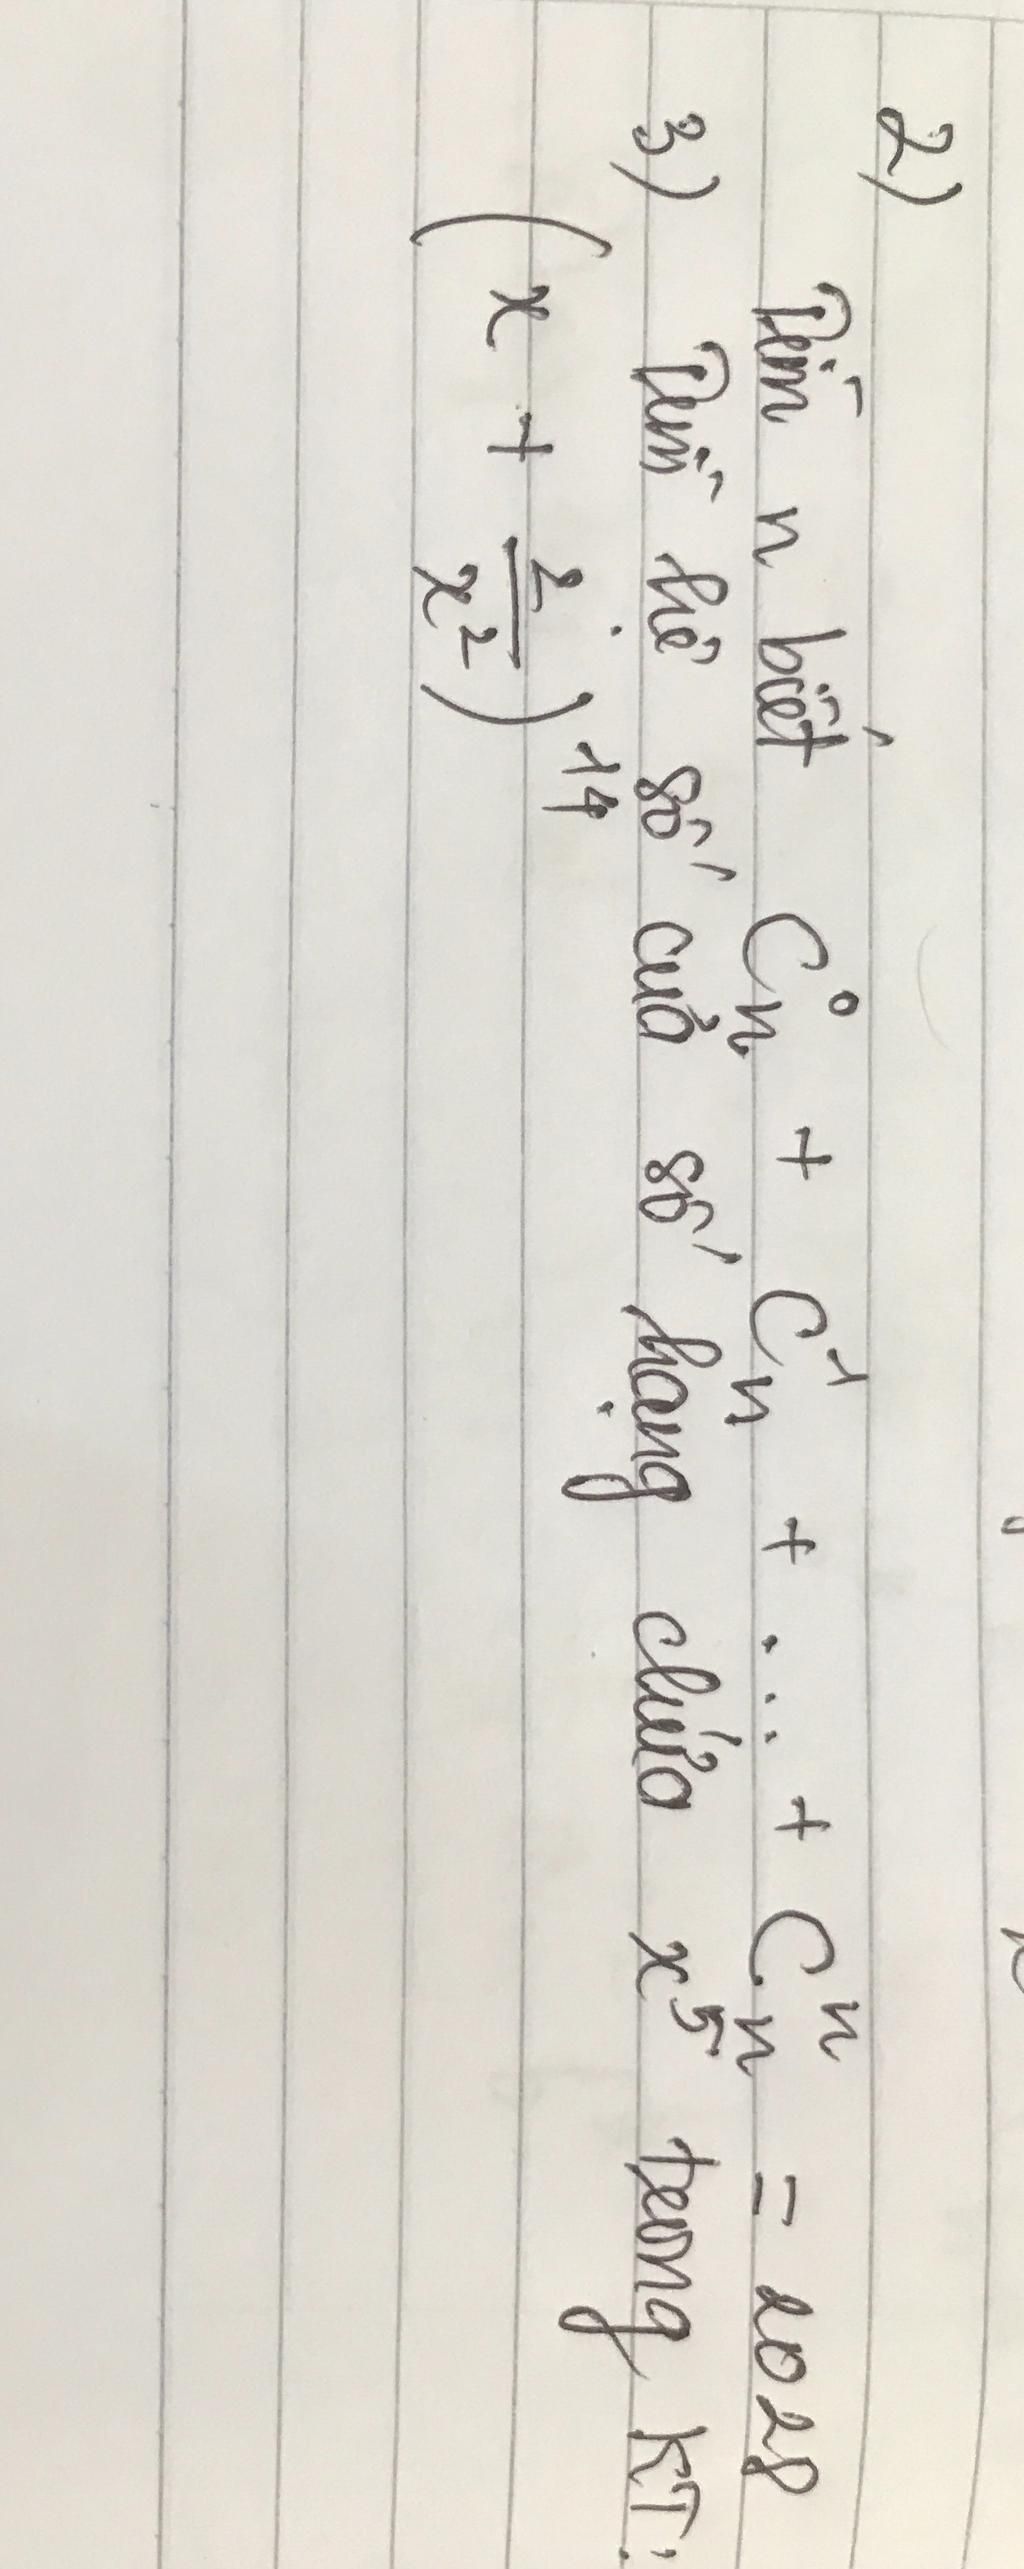 2)
Tìm n biết C⁰ₙ + C¹ₙ + ... + Cⁿₙ = 2028
3) Tìm hệ số của số hạng chứa x⁵ trong KT:
(x + 2/x²)¹⁴